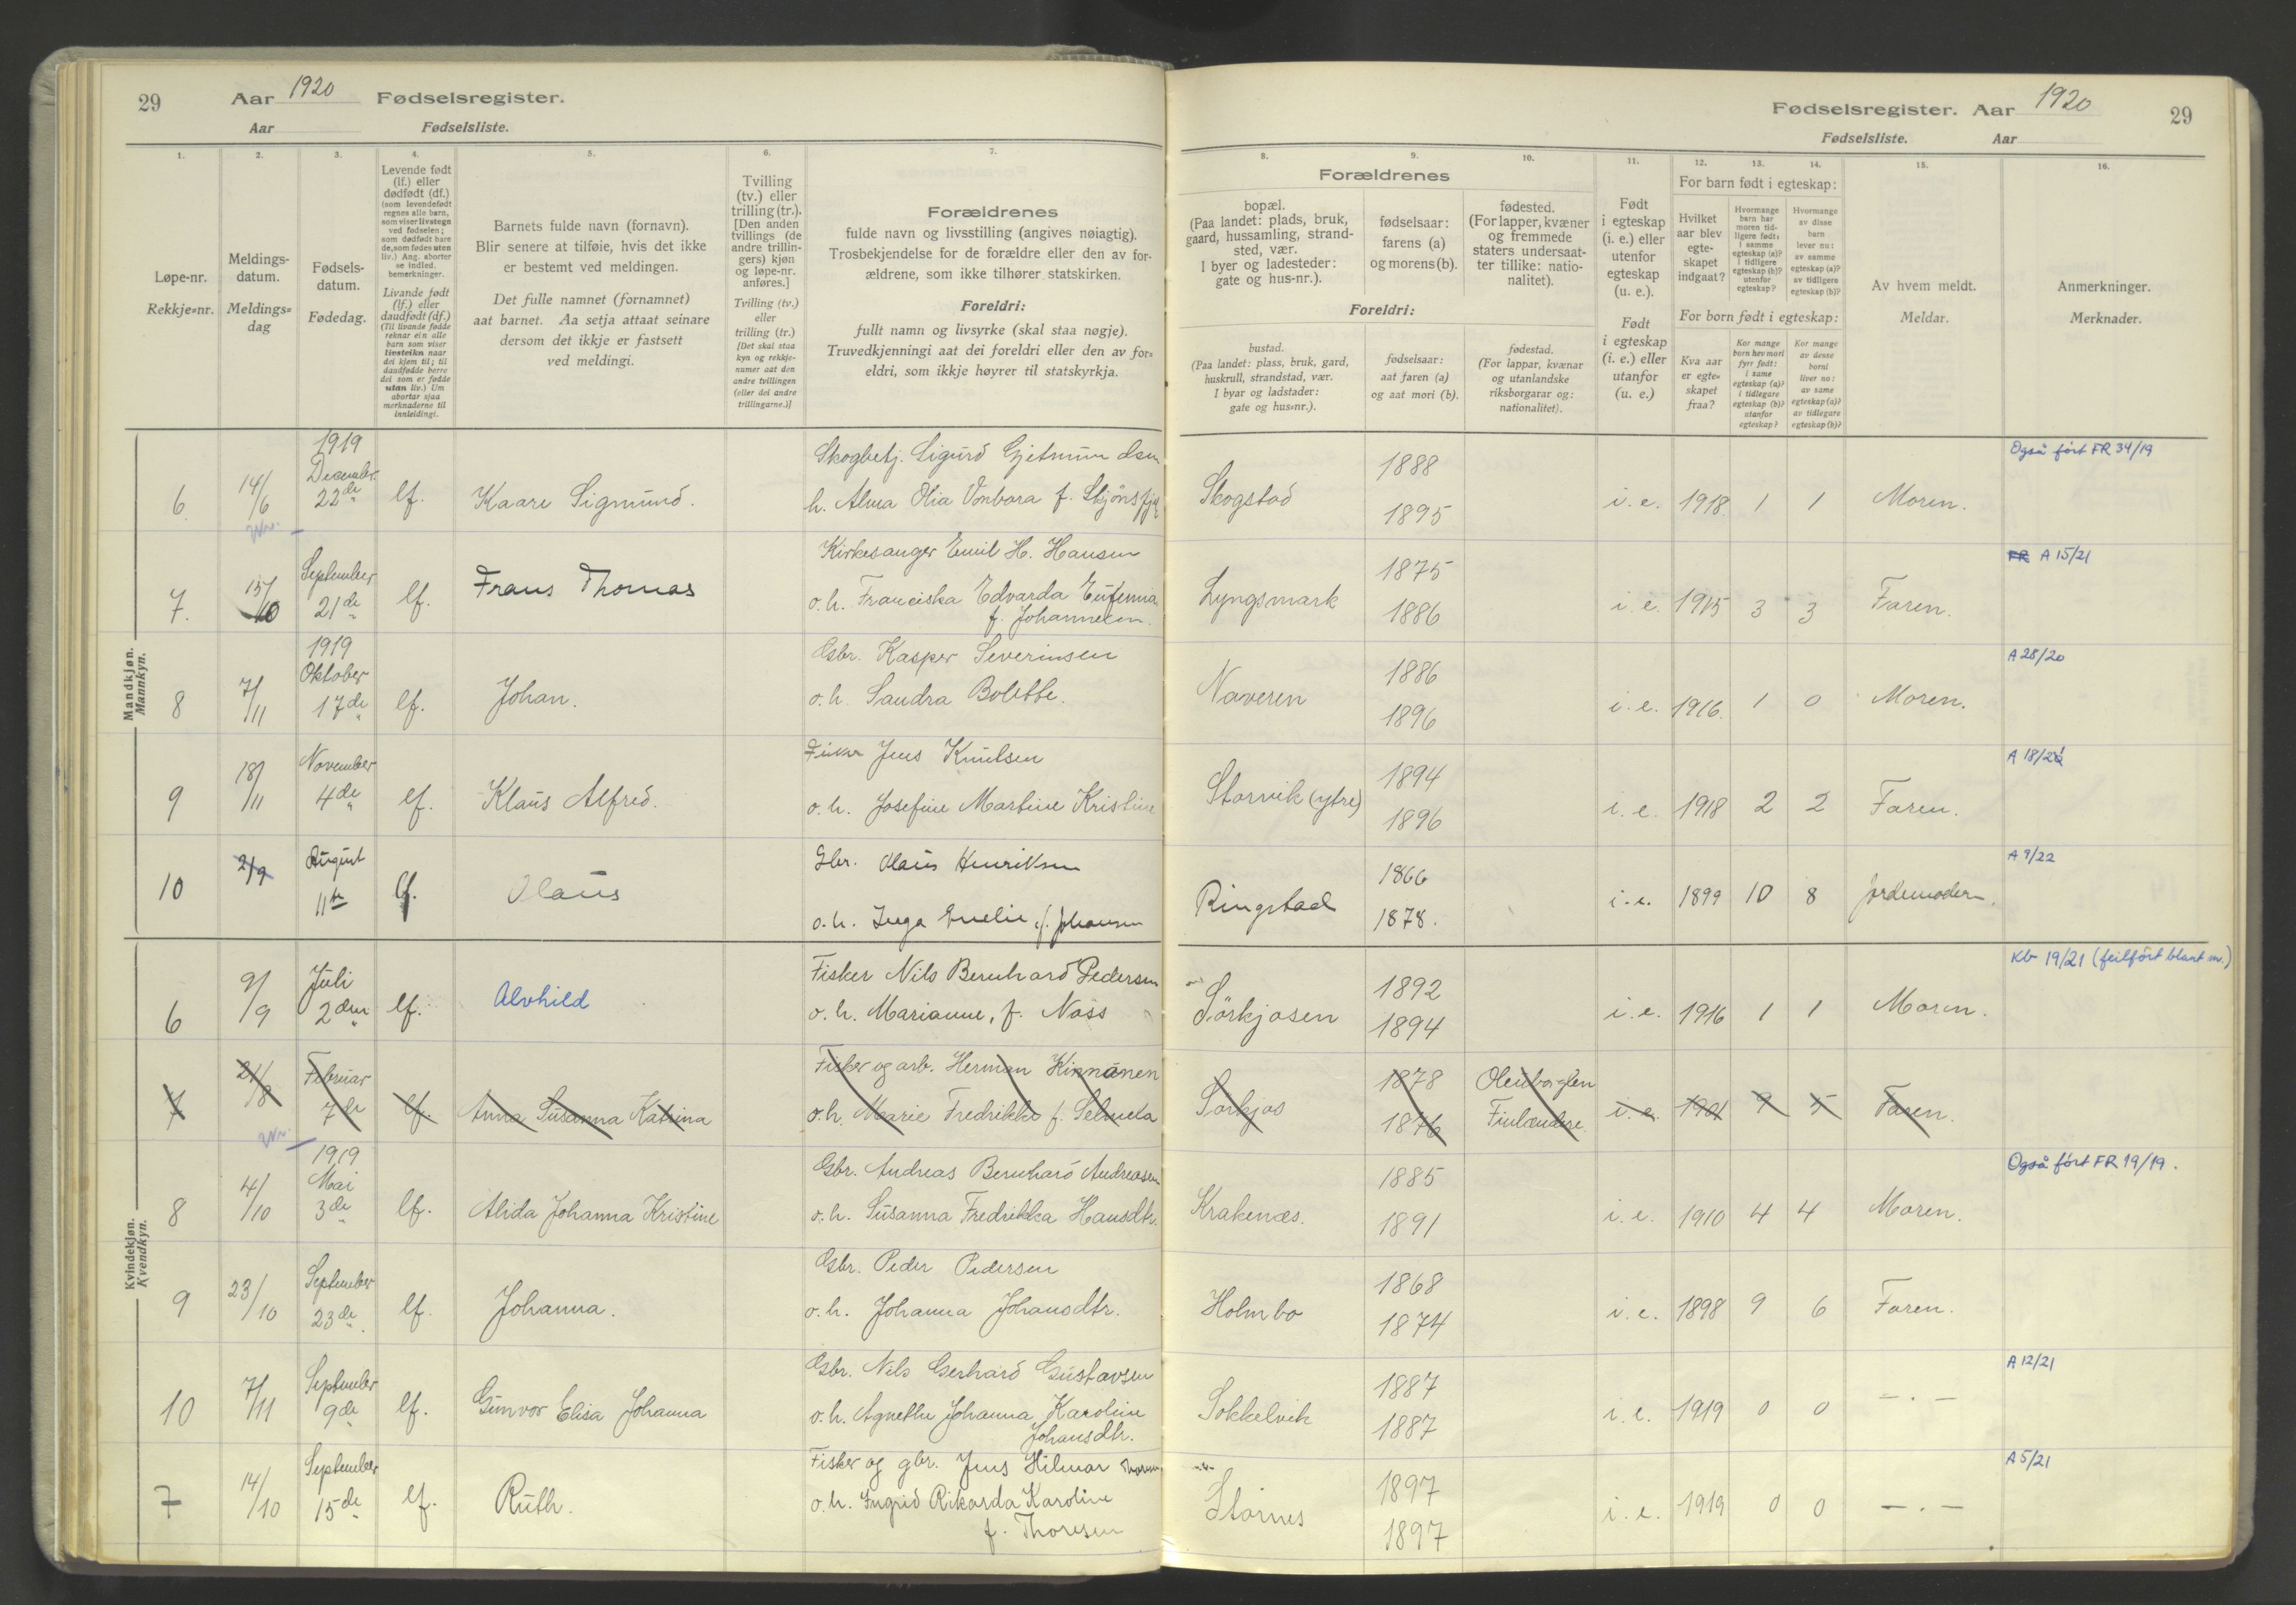 29 Aar 1920 Fødselsregister.
Aar Fødselsliste.
1. 2. 3. 4. 5. 6. 7.
Løpe-nr.
Rekkje=nr.
Meldings-
datum.
Meldings=
dag
Fødsels-
datum.
Fødedag.
Levende født
(lf.) eller
dødfødt (df.)
(som levendefødt
regnes alle barn,
som viser livstegn
ved fødselen;
som dødfødt bare
de, som fødes uten
liv.) Ang. aborter
se indled.
bemerkninger.
Livande født
(lf.) eller
daudfødt (df.)
(Til livande fødde
reknar ein alle
barn som viser
livsteikn naar
dei kjem til; til
daudfødde berre
dei som er fødde
utan liv.) Um
abortar sjaa
merknaderne til
innleidingi.
Barnets fulde navn (fornavn).
Blir senere at tilføie, hvis det ikke
er bestemt ved meldingen.
Det fulle namnet (fornamnet)
aat barnet. Aa setja attaat seinare
dersom det ikkje er fastsett
ved meldingi.
Tvilling
(tv.) eller
trilling (tr.).
[Den anden
tvillings (de
andre trillin-
gers) kjøn
og løpe-nr.
anføres.]
Tvilling (tv.)
eller
trilling (tr.)
[Det skal staa
kyn og rekkje-
numer aat den
andre tvillingen
(eller dei andre
trillingarne.)]
Forældrenes
fulde navn og livsstilling (angives nøiagtig).
Trosbekjendelse for de forældre eller den av for-
ældrene, som ikke tilhører statskirken.
Foreldri:
fullt namn og livsyrke (skal staa nøgje).
Truvedkjenningi aat dei foreldri eller den av for=
eldri, som ikkje høyrer til statskyrkja.
Mandkjøn.
Mannkyn.
6 14/6 1919 December 22de lf. Kaare Sigmund. Skogbetj. Sigurd Gjetmundsen
h. Alma Olia Vonbara f.
7. 15/10 September 21de lf. Frans Thomas Kirkesanger Emil H. Hansen
o. h. Franciska Edvarda Eufemia
f. Johannesen.
8 7/11 1919 Oktober 17de lf. Johan. Gbr. Kasper Severinsen
o. h. Sandra Bolette.
9 18/11 November 4de lf. Klaus Alfred. Fisker Jens Knutsen
o. h. Josefine Martine Kristine
10 2/9 August 11te lf. Olaus Gbr. Olaus Henriksen
o. h. Inga Emelie, f. Johansen
Kvindekjøn.
Kvendkyn.
6 9/9 Juli 2den lf. Alvhild Fisker Nils Bernhard Pedersen
o. h. Marianne, f. Næss
7 21/8 Februar 7de lf. Anna Susanna Katrina Fisker og arb. Herman Kinnänen
o. h. Marie Fredrikke f.
8 4/10 1919 Mai 3de lf. Alida Johanna Kristine Gbr. Andreas Bernhard Andreasen
o. h. Susanna Fredrikka Hansdtr.
9 23/10 September 23de lf. Johanna. Gbr. Peder Pedersen
o. h. Johanna Johansdtr.
10 7/11 September 9de lf. Gunvor Elisa Johanna Gbr. Nils Gerhard Gustavsen
o. h. Agnethe Johanna Karoline
Johansdtr.
7 14/10 September 15de lf. Ruth. Fisker og gbr. Jens Hilmar
o. h. Ingrid Rikarda Karoline
f. Thoresen
Fødselsregister. Aar 1920 29
Fødselsliste. Aar
8. 9. 10. 11. 12. 13. 14. 15. 16.
Forældrenes
bopæl.
(Paa landet: plads, bruk,
gaard, hussamling, strand-
sted, vær.
I byer og ladesteder:
gate og hus-nr.).
fødselsaar:
farens (a)
og morens (b).
fødested.
(For lapper, kvæner
og fremmede
staters undersaat-
ter tillike: natio-
nalitet).
Foreldri:
bustad.
(Paa landet: plass, bruk, gard,
huskrull, strandstad, vær.
I byar og ladstader:
gate og hus=nr.).
fødselsaar:
aat faren (a)
og aat mori (b).
fødestad.
(For lappar, kvænar
og utanlandske
riksborgarar og:
nationalitet).
Født
i egteskap
(i. e.) eller
utenfor
egteskap
(u. e.).
Født
i egteskap
(i. e.) eller
utanfor
(u. e.)
For barn født i egteskap:
Hvilket
aar blev
egte-
skapet
indgaat?
Hvormange
barn har
moren tid-
ligere født:
i samme
egteskap (a)?
i tidligere
egteskap (b)?
utenfor
egteskap?
Hvormange
av disse
barn
lever nu:
av samme
egteskap (a)?
av tidligere
egteskap (b)?
For born født i egteskap:
Kva aar
er egte=
skapet
fraa?
Kor mange
born hev mori
fyrr født:
i same
egteskap (a)?
i tidlegare
egteskap (b)?
utanfor
egteskap?
Kor mange
av desse
borni
liver no:
av same
egteskap (a)?
av tidlegare
egteskap (b)?
Av hvem meldt.
Meldar.
Anmerkninger.
Merknader.
Skogstad 1888 1895 i. e. 1918 1 1 Moren. Også ført FR 34/19
Lyngsmark 1875 1886 i. e. 1915 3 3 Faren. FR A 15/21
Naveren 1886 1896 i. e. 1916 1 0 Moren. A 28/20
Storvik (ytre) 1894 1896 i. e. 1918 2 2 Faren. A 18/21
Ringstad 1866 1878. i. e. 1899 10 8 Jordemoder. A 9/22
Sörkjosen 1892 1894 i. e. 1916 1 1 Moren. Kb 19/21 (feilført blant m.)
Sørkjos 1878 1876 Finlændere. i. e. 1901 9 5 Faren.
Krakenæs. 1885 1891 i. e. 1910 4 4 Moren. Også ført FR 19/19.
Holmbo 1868 1874 i. e. 1898 9 6 Faren.
Sokkelvik 1887 1887 i. e. 1919 0 0 — . — A 12/21
Stornes 1897 1897 i. e. 1919 0 0 — . — A 5/21